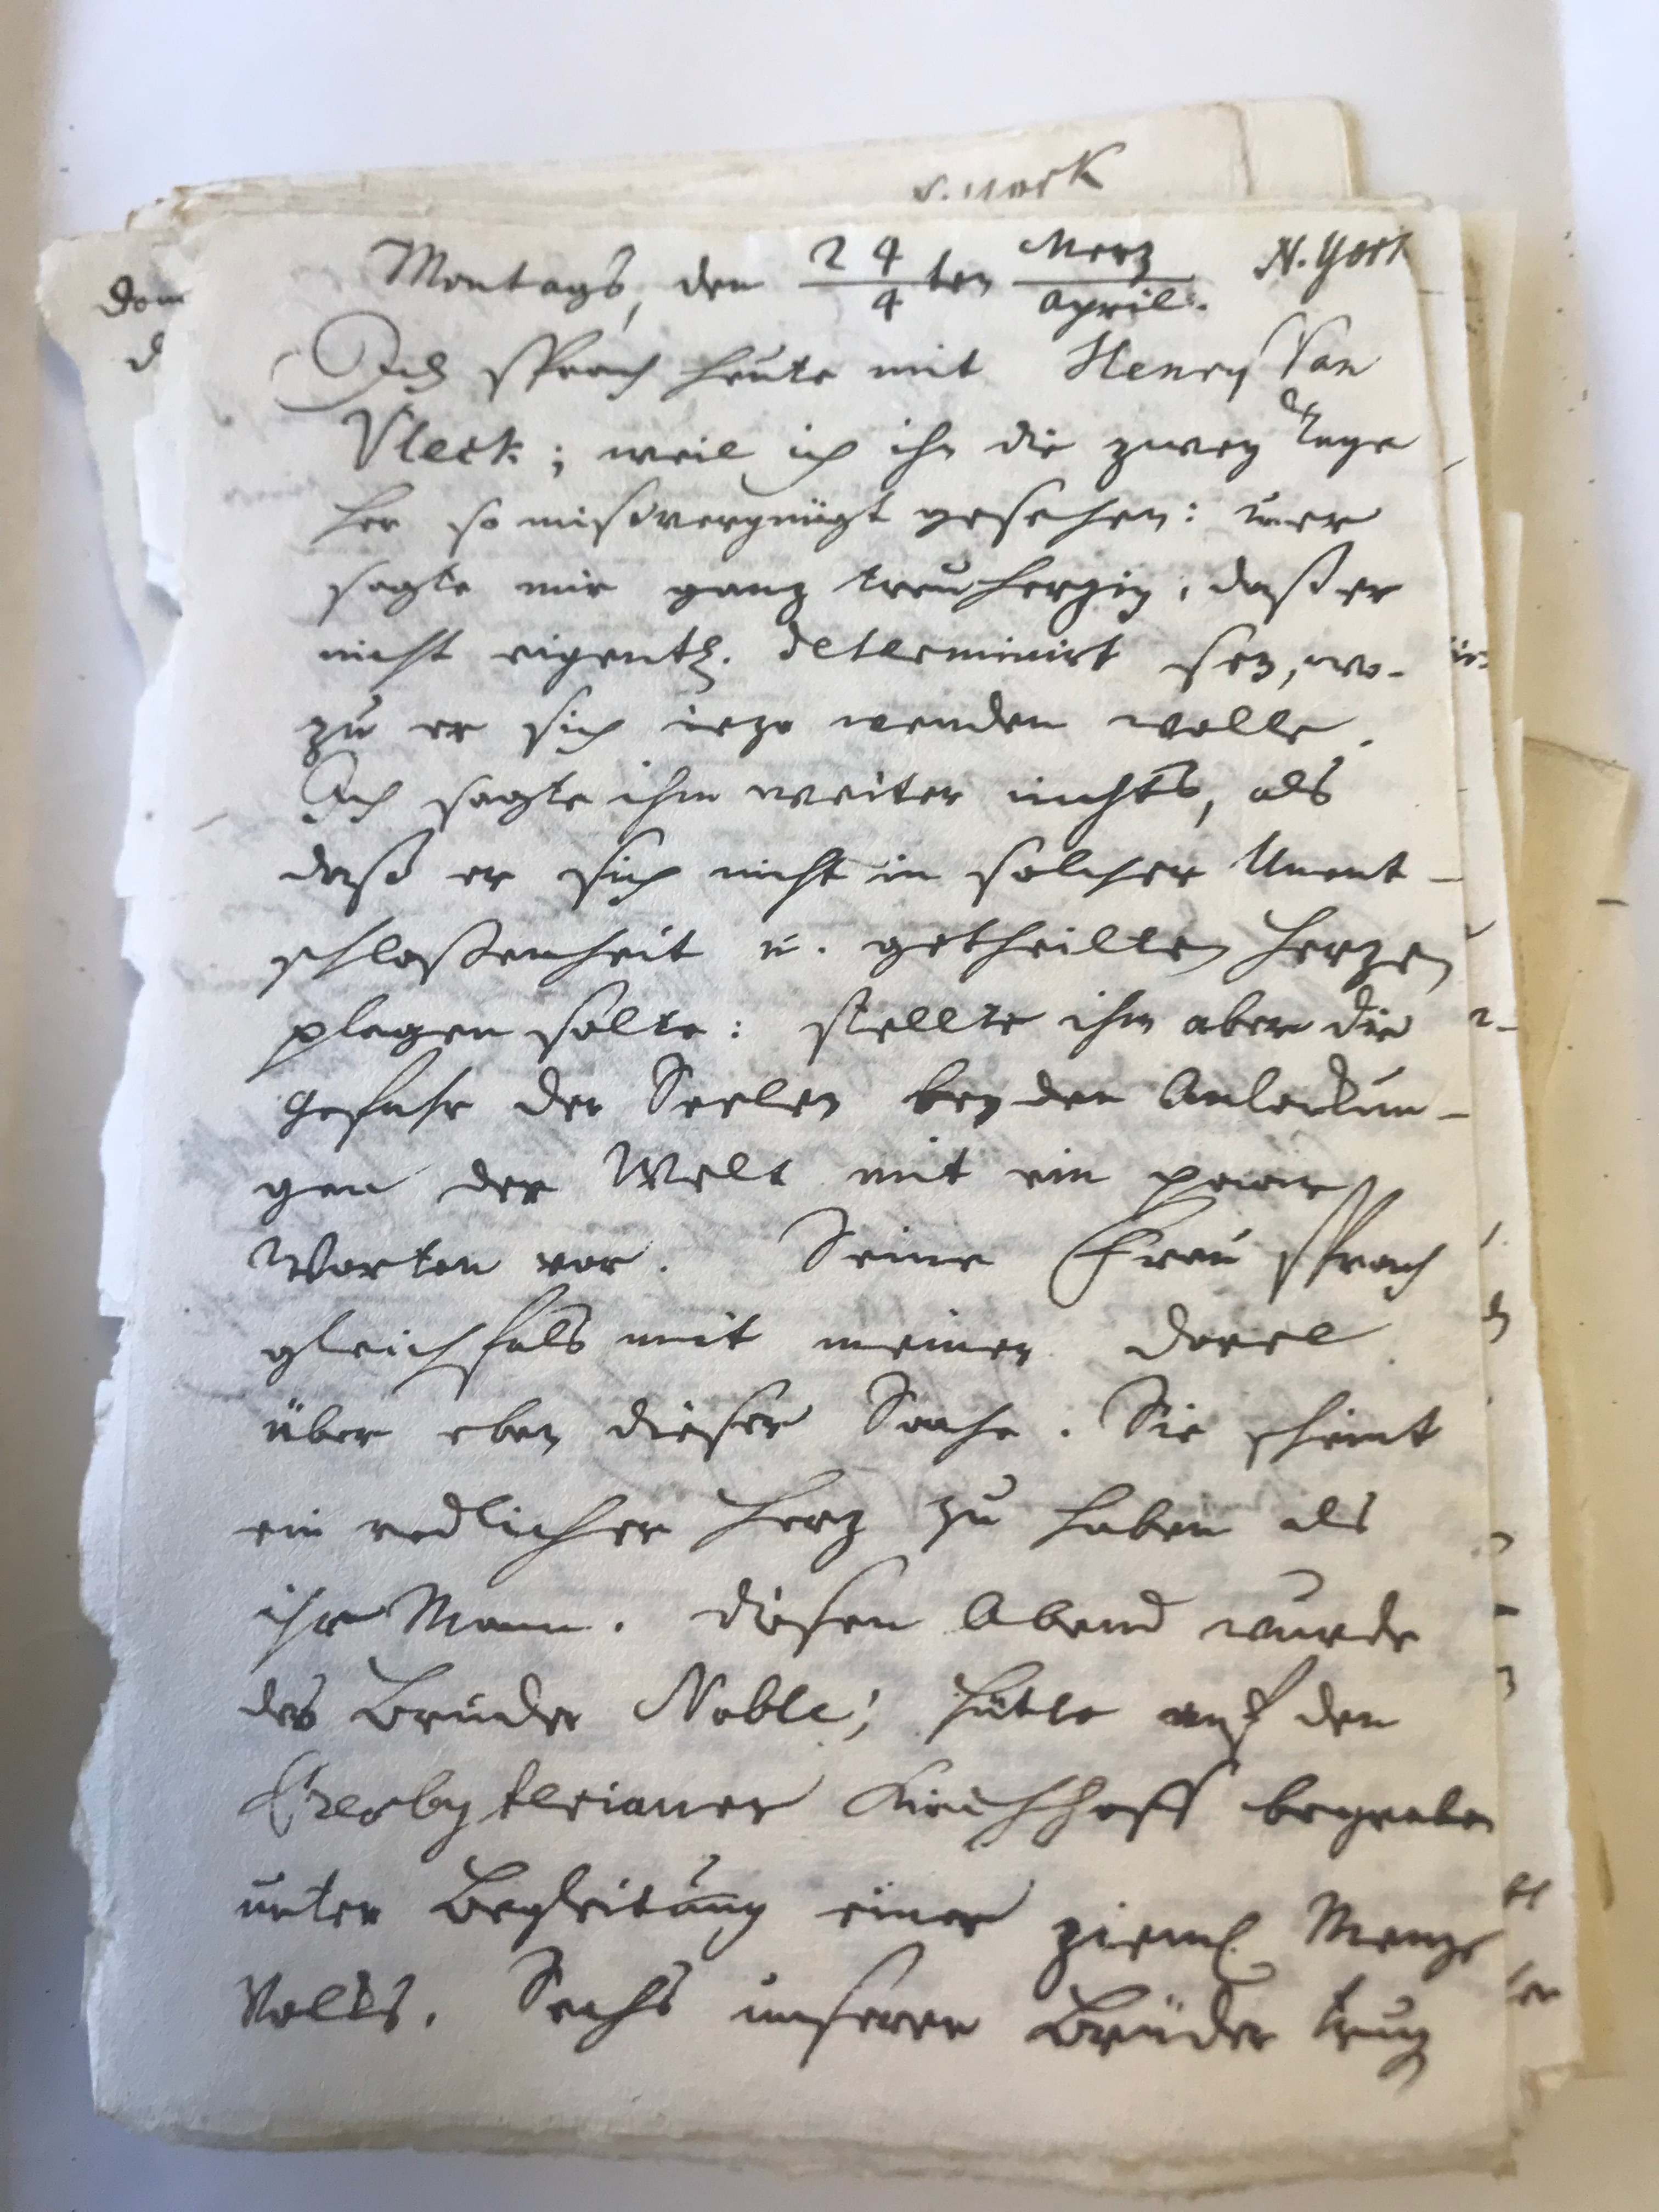 N. York
Montags, den 24/4 ten Merz/April.
Ich sprach heute mit Henry Van
Vleck; weil ich ihn die zwey Tage
her so mißvergnügt gesehen: u. er
sagte mir ganz treuherzig, daß er
nicht eigentl. determinirt sey, wo-
zu er sich iezo wenden wolle.
Ich sagte ihm weiter nichts, als
daß er sich nicht in solcher Unent-
schloßenheit u. getheilten Herzen
plagen solte: stellte ihm aber die
Gefahr der Seelen bey den Anlockun-
gen der Welt mit ein paar
Worten vor. Seine Frau sprach
gleichfals mit meiner Dorel
über eben dieser Sache. Sie scheint
ein redlicher Herz zu haben als
ihr Mann. Diesen Abend wurde
des Bruder Noble, Hütte auf den
Presbyterianer Kirchhoff begraben
unter Begleitung einer zieml. Menge
Volks. Sechs unserer Brüder trug